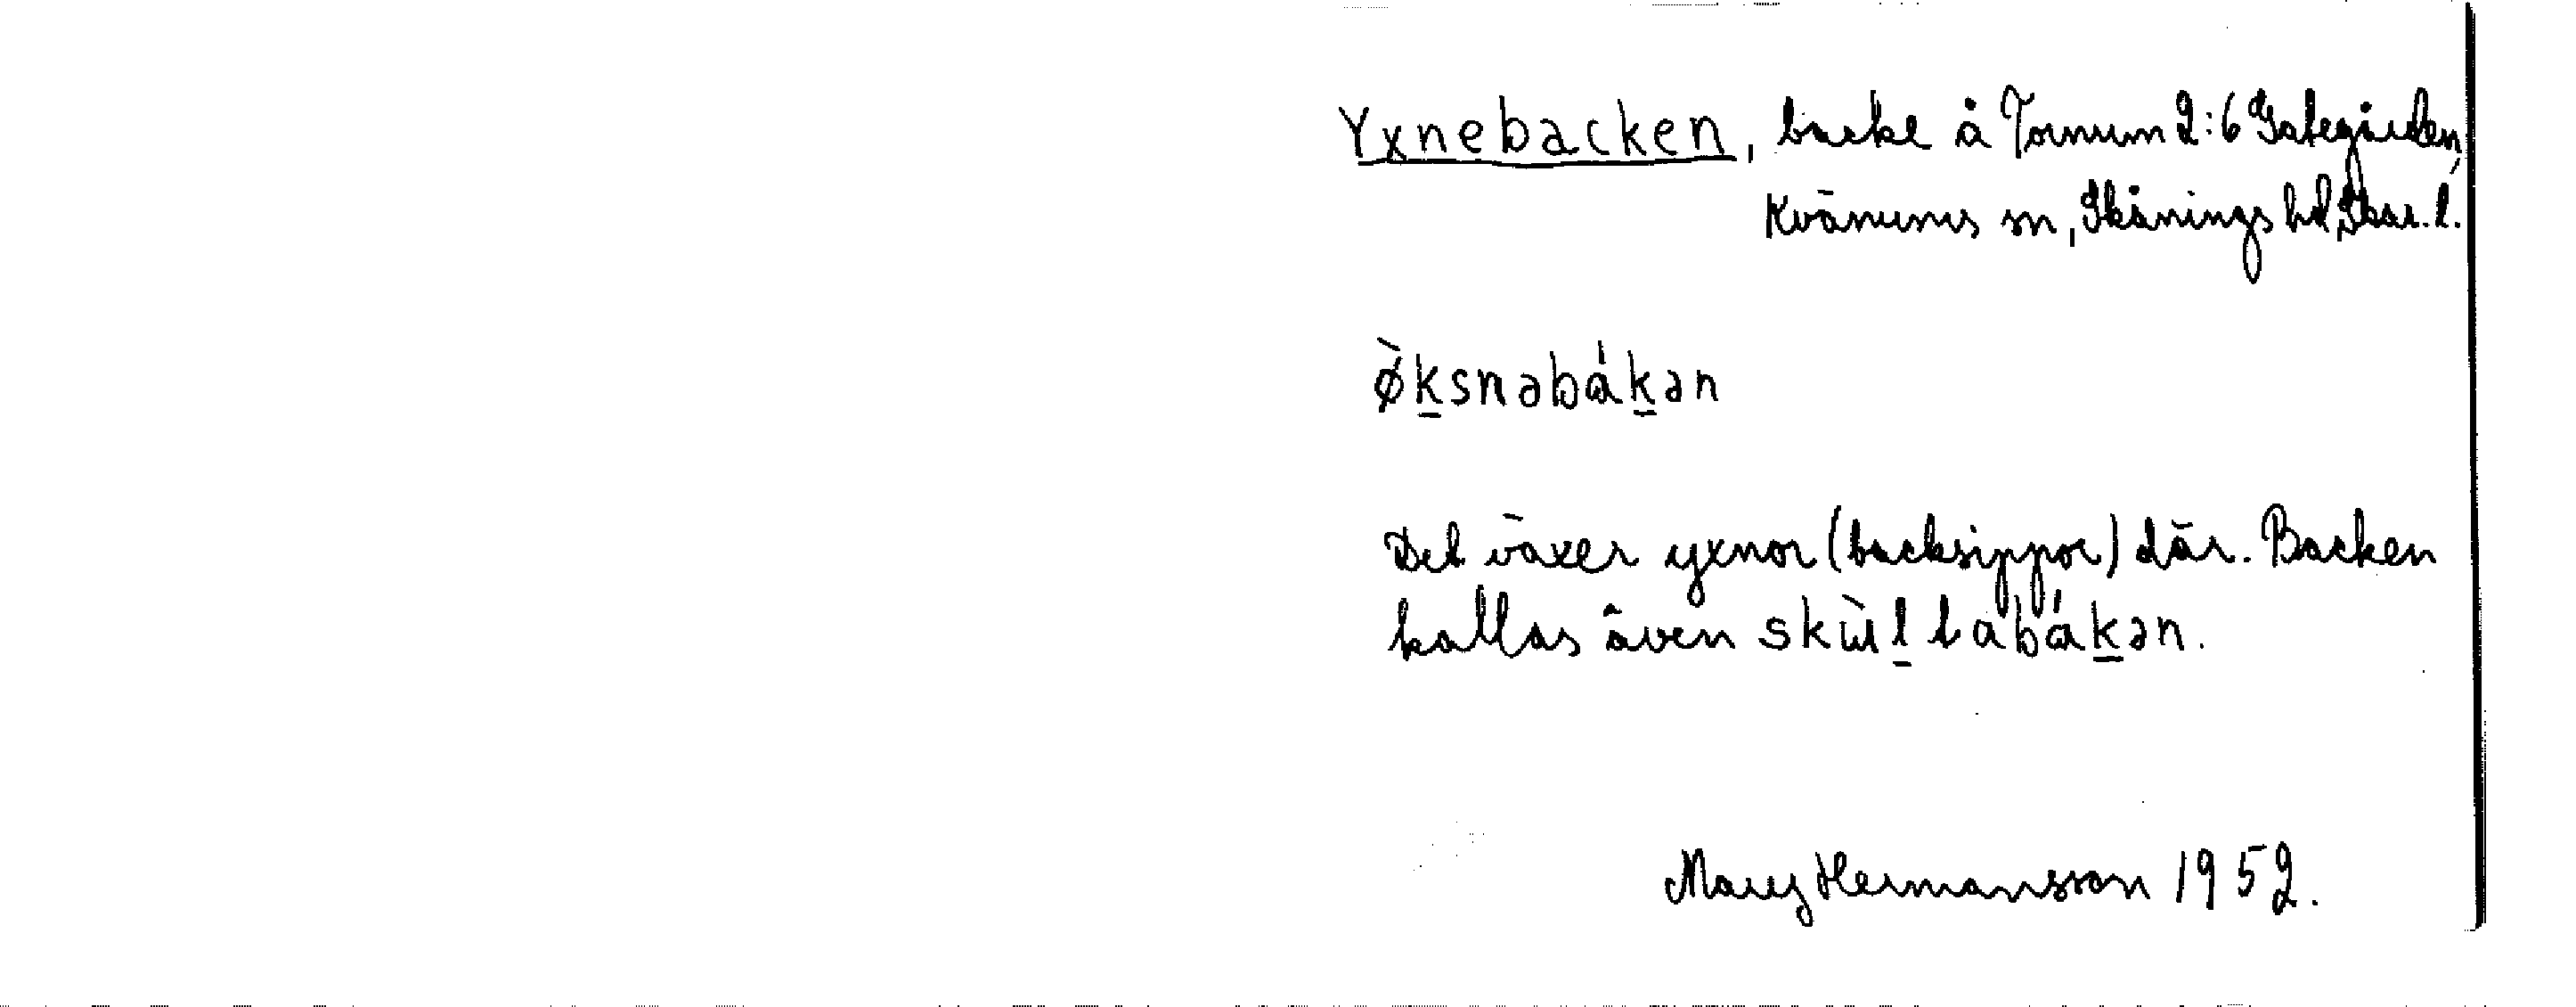 Yxnebacken, backe å Tornum 2:6 Gategården,
Kvänums sn, Skånings hd, Skar. l.
ø̀k̠snəbák̠ən
Det växer yxnor (backsippor) där. Backen
kallas även skùl̠tabák̠ən.
Mary Hermansson 1952.